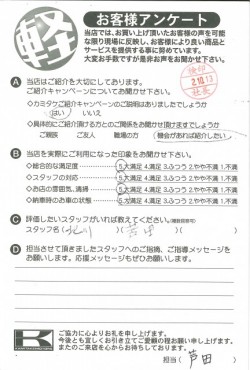 軽
お客様アンケート
当店では、お買い上げ頂いたお客様の声を可能
な限り現場に反映し、お客様により良い商品と
サービスを提供する事に努めています。
大変お手数ですが是非お声をお聞かせ下さい。
A 当店はご紹介を大切にしております。
ご紹介キャンペーンについてお聞かせ下さい?
◇カミタケご紹介キャンペーンのご説明はありましたでしょうか
はい いいえ
◇具体的にご紹介頂ける方とのご関係をお聞かせ頂けますでしょうか
ご親族 ご友人 職場の方 機会があれば紹介したい
2.10.13
社長
B 当店を実際にご利用になった印象をお聞かせ下さい。
◇総合的な満足度 5.大満足 4.満足 3.ふつう 2.やや不満 1.不満
◇スタッフの対応 5.大満足 4.満足 3.ふつう 2.やや不満 1.不満
◇お店の雰囲気、清掃 5.大満足 4.満足 3.ふつう 2.やや不満 1.不満
◇納車時のお車の状態 5.大満足 4.満足 3.ふつう 2.やや不満 1.不満
C 評価したいスタッフがいれば教えてください。(複数回答可)
スタッフ名( 芦田 )
D 担当させて頂きましたスタッフへのご指摘、ご指導メッセージを
お願いします。応援メッセージもぜひお願いします。
K
ご協力に心よりお礼を申し上げます。
今後とも宜しくお引き立てご愛顧の程お願い申し上げます。
またのご来店を心からお待ちしております。
担当( 芦田 )